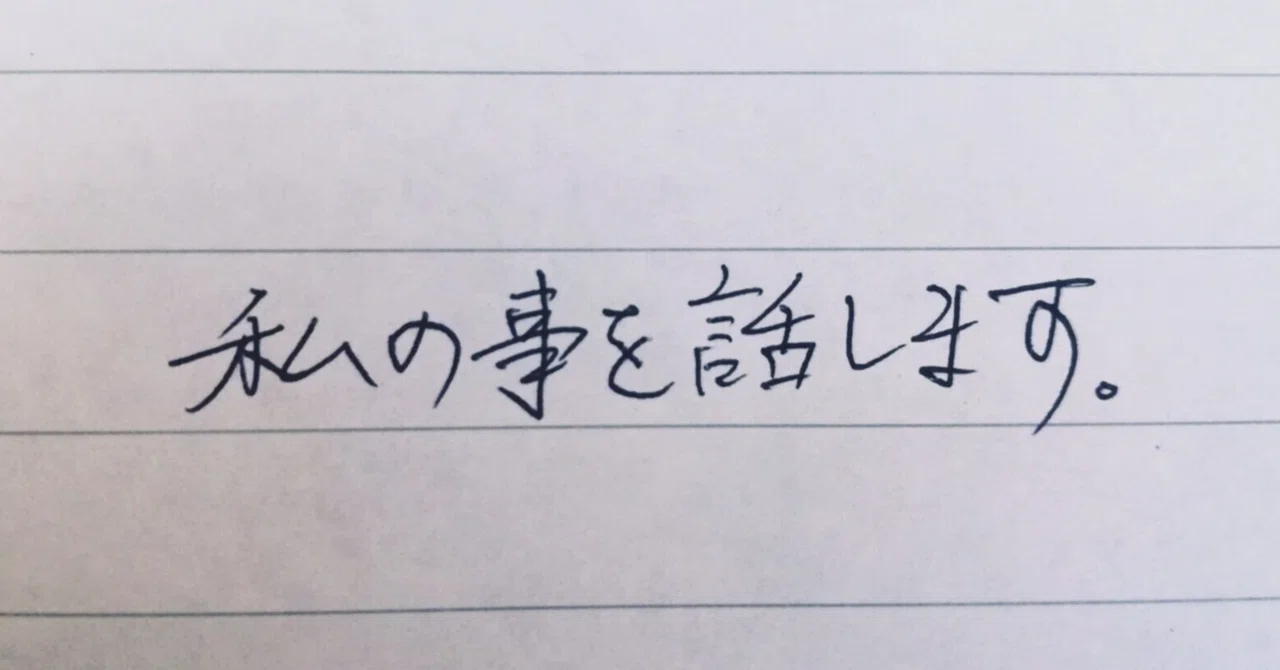 私の事を話します。